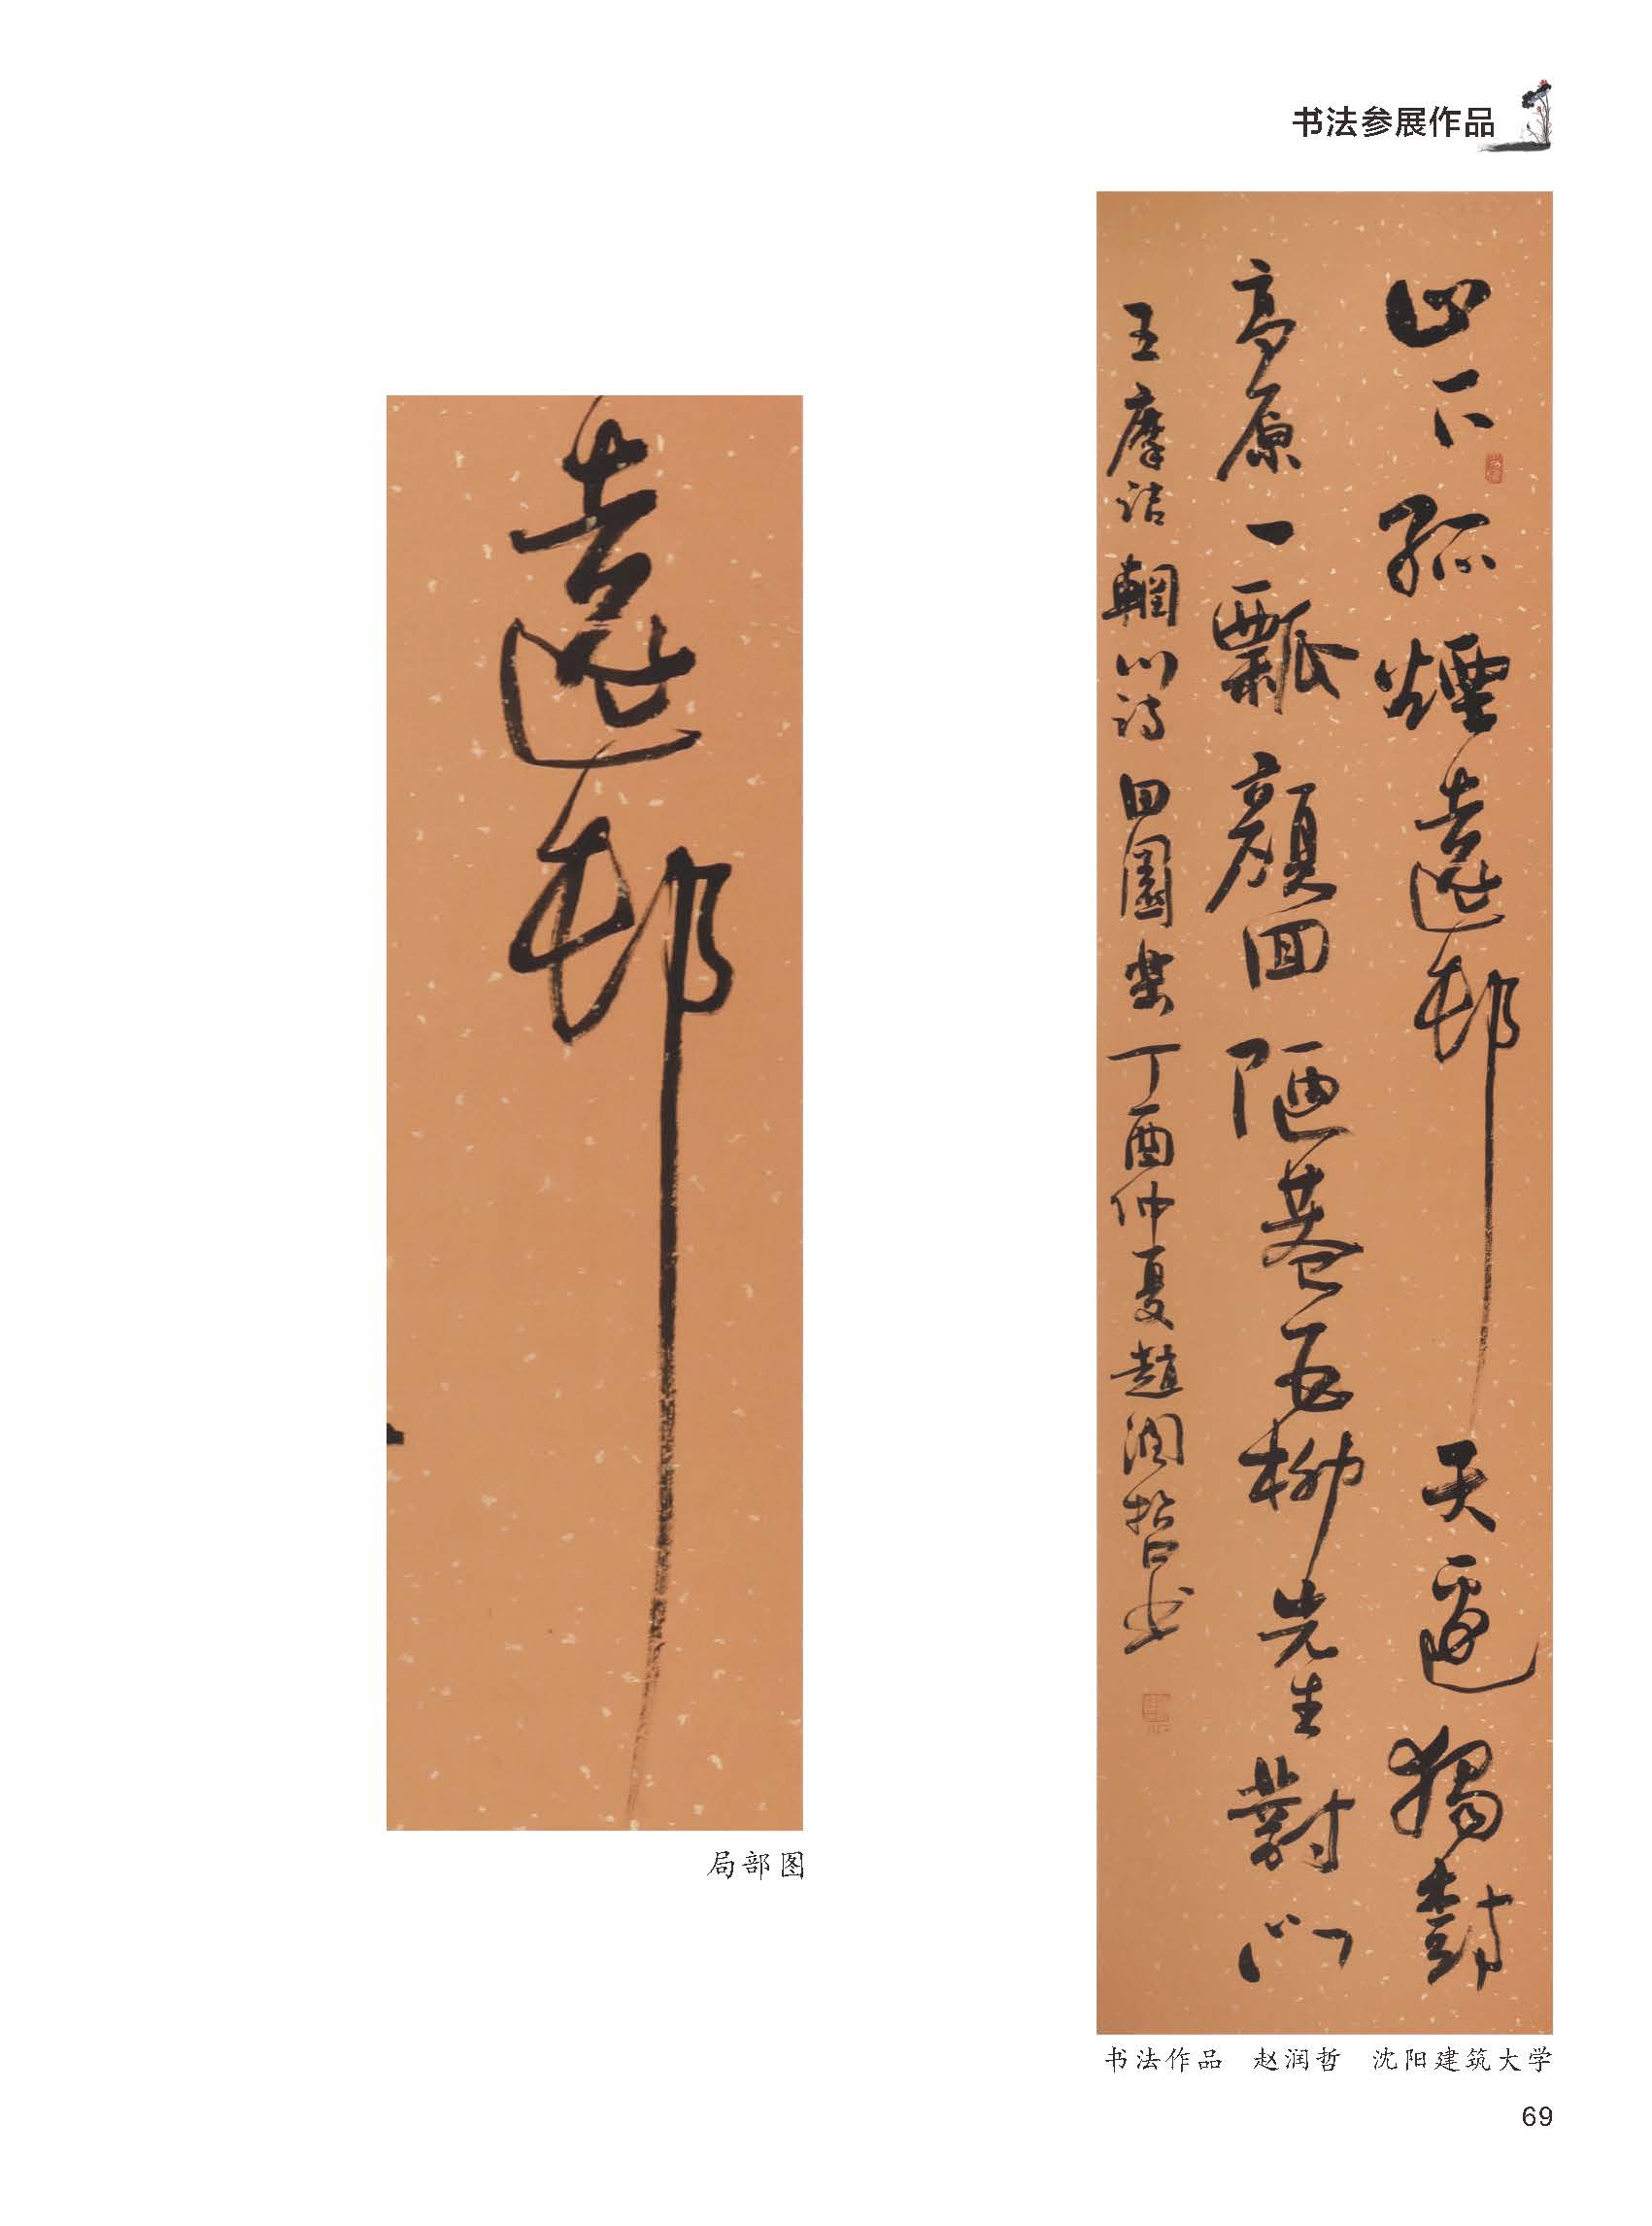 书法参展作品
山下孤煙遠邨天邊獨樹
高原一瓢顏回陋巷五柳先生對門
王摩诘輞川诗田園樂丁酉仲夏趙润哲书
遠邨
局部图
书法作品 赵润哲 沈阳建筑大学
69